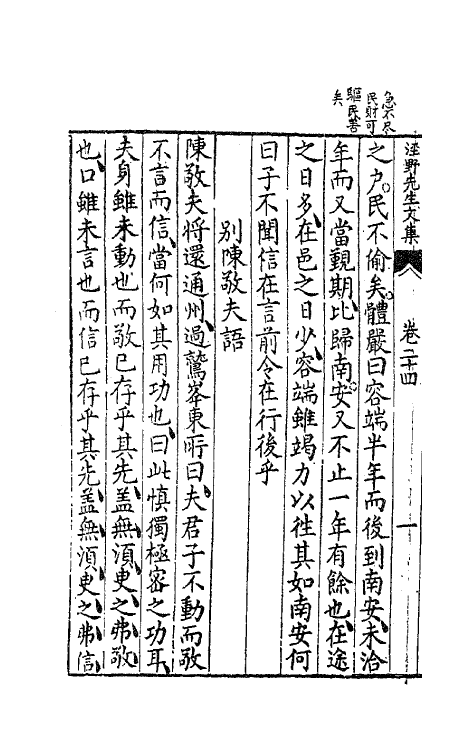 急不尽
民財可
驅民善
矣
涇野先生文集
卷二十四
一
之户民不偷矣體嚴曰容端半年而後到南安未洽
年而又當覲期比歸南安又不止一年有餘也在途
之日多在邑之日少容端雖竭力以徃其如南安何
曰子不聞信在言前令在行後乎
別陳敬夫語
陳敬夫將還通州過鷲峯東所曰夫君子不動而敬
不言而信當何如其用功也曰此慎獨極密之功耳
夫身雖未動也而敬已存乎其先盖無湏臾之弗敬
也口雖未言也而信已存乎其先盖無湏臾之弗信